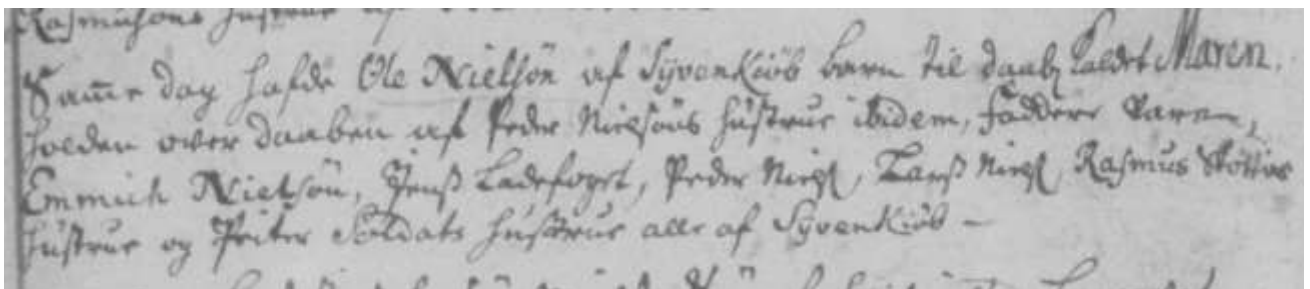 Rasmusøns hustrue af
Samme dag hafde Ole Nielsøn af Syvenkiöb barn til daab, kaldet Maren.
holden over daaben af Peder Nielsøns hustrue ibidem, faddere vare
Emmich Nielsøn, Jenß Ladefoget, Peder Nielß, Larß Nielß, Rasmus
hustrue og Peiter Soldats hustrue alle af Syvenkiöb –